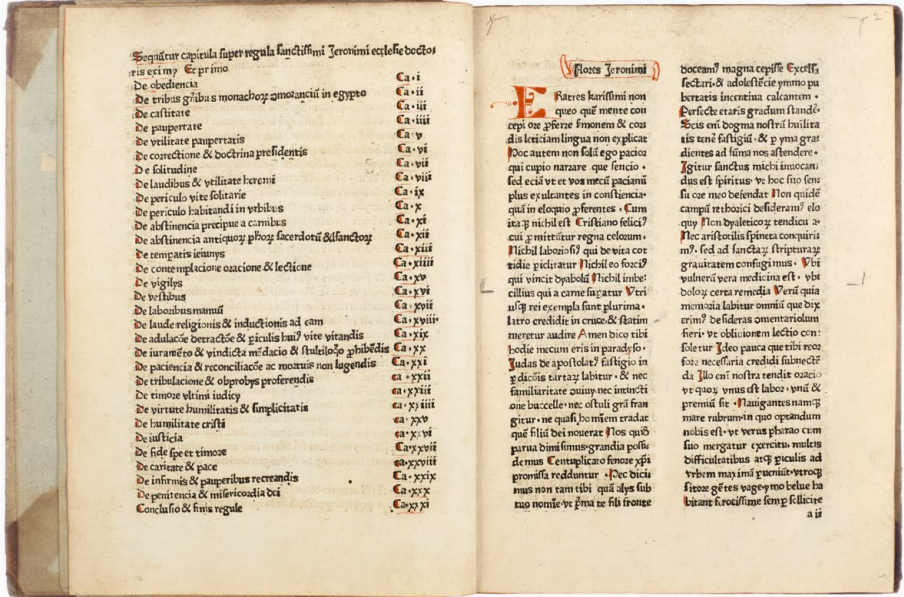 Sequũtur capitula super regula sanctissimi Jeronimi ecclesie doctoꝛ
ris eximy Et primo
De obediencia Ca·i
De tribus gñibus monachoꝝ 2moranciũ in egypto Ca·ii
De castitate Ca·iii
De paupertate Ca·iiii
De vtilitate paupertatis Ca·v
De correctione & doctrina presidentis Ca·vi
De solitudine Ca·vii
De laudibus & vtilitate heremi Ca·viii
De periculo vite solitarie Ca·ix
De periculo habitandi in vrbibus Ca·x
De abstinencia precipue a carnibus Ca·xi
De abstinencia antiquoꝝ phoꝝ sacerdotũ &sanctoꝝ Ca·xii
De temperatis ieiunys Ca·xiii
De contemplacione oracione & lectione Ca·xiiii
De vigilys Ca·xv
De vestibus Ca·xvi
De laboribus manuũ Ca·xvii
De laude religionis & inductionis ad eam Ca·xviii·
De adulacõe detractõe & ꝑiculis huiꝰ vite vitandis Ca·xix
De iuramẽto & vindicta mẽdacio & stultiloꝗo ꝓhibẽdis Ca·xx
De paciencia & reconciliacõe ac mortuis non lugendis Ca·xxi
De tribulacione & obprobys proferendis ca·xxii
De timore vltimi iudicy ca·xxiii
De virtute humilitatis & simplicitatis ca·xxiiii
De humilitate cristi ca·xxv
De iusticia ca·xxvi
De fide spe et timore Ca·xxvii
De caritate & pace ca·xxviii
De infirmis & pauperibus recreandis Ca·xxix
De penitencia & misericordia dei Ca·xxx
Conclusio & finis regule Ca·xxxi
Flores Jeronimi
FRatres karissimi non
queo quẽ mente con
cepi ore ꝓferre sermonem & cord
dis leticiam lingua non explicat
Hoc autem non solũ ego pacior
qui cupio narrare que sencio·
sed eciã vt et vos mecũ paciamĩ
plus exultantes in consciencia·
quã in eloquio ꝓferentes·Cum
itaꝗ nichil est Cristiano feliciꝰ
cui ꝓmittũtur regna celorum·
Nichil laboriosiꝰ qui de vita cot
tidie ꝑiclitatur Nichil eo forciꝰ
qui vincit dyabolũ Nichil imbe⸗
cillius qui a carne suꝑatur Vtri
usꝗ rei exempla sunt plurima·
latro credidit in cruce·& statim
meretur audire Amen dico tibi
hodie mecum eris in paradyso·
Judas de apostolatꝰ fastigio in
ꝓdicõis tartaꝝ labitur·& nec
familiaritate 2uiuy·nec incincti
one buccelle·nec osculi grã fran
gitur·ne quasi hoĩem tradat
quẽ filiũ dei nouerat Nos quoꝗ
parua dimisimus·grandia possi⸗
demus Centuplicato fenore xp̃i
promissa redduntur·Nec dici⸗
mus non tam tibi quã alys sub
tuo nomine·vt ꝓma te fili fronte
doceamꝰ magna cepisse Excelsa
sectari·& adolescẽcie ymmo pu
bertatis incentiua calcantem·
Perfecte etatis gradum standẽ·
Scis enĩ dogma nostrũ humilita
tis tenẽ fastigiũ·& ꝑ yma gra⸗
dientes ad sũma nos ascendere·
Igitur sanctus michi inuocan⸗
dus est spiritus·vt hoc suo sensu
su ore meo defendat Non quidẽ
campũ rethorici desideramꝰ elo
quy Non dyaleticoꝝ tendicu⸗
Nec aristotilis spineta conquiri⸗
mꝰ·sed ad sanctaꝝ scripturaꝝ
grauitatem confugimus·Vbi
vulnerũ vera medicina est·vbi
doloꝝ certa remedia Verũ quia
memoria labitur omniũ que dix
erimꝰ desideras 2mentariolum
fieri·vt obliuionem lectio con⸗
soletur Ideo pauca que tibi reor
fore necessaria credidi subnectẽ
da Illo enĩ nostra tendit oracio
vt quoꝝ vnus est labor·vnũ &
premiũ sit·Nauigantes namꝗ
mare rubrum·in quo optandum
nobis est·vt verus pharao cum
suo mergatur exercitu·multis
difficultatibus atꝗ ꝑiculis ad
vrbem maximã ꝑueniũt·vtroꝗ
litore gẽtes vage·ymo belue ha
bitant ferocissime semꝑ sollicite
a ii